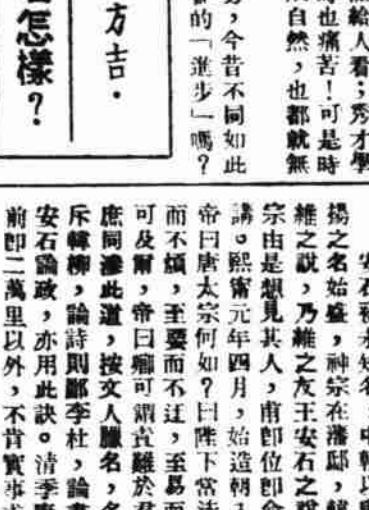 然給人看；秀才學
也痛苦！可是時
自然，也都就無
，今昔不同如此
的「進步」嗎？
方吉．
怎樣？
揚之名始盛，神宗在藩邸，韓
維之說，乃維之友王安石之說
宗由是想見其人，甫即位卽命
講。熙甯元年四月，始造朝入
帝曰唐太宗何如？曰陛下當法
而不煩，至要而不迂，至易而
可及爾，帝曰卿可謂責難於君
庶同濟此道，按文人騷名，名
斥韓柳，論詩則鄙李杜，論書
安石論政，亦用此訣。清季
前卽二萬里以外，不肯實事求